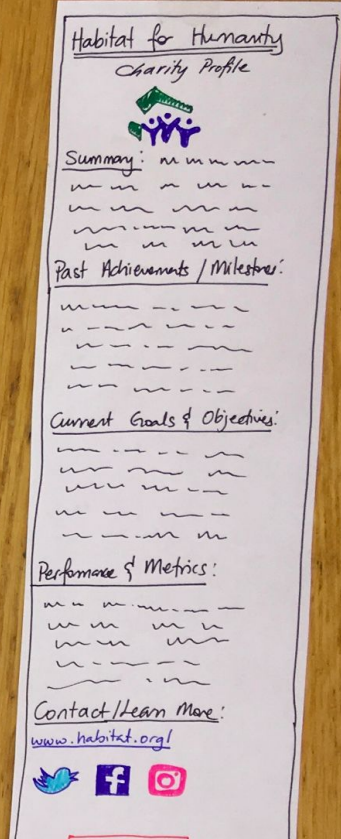 Habitat for Humanity
Charity Profile
Summary:
Past Achievements / Milestones:
Current Goals & Objectives:
Performance & Metrics:
Contact/Learn More:
www.habitat.org/
f